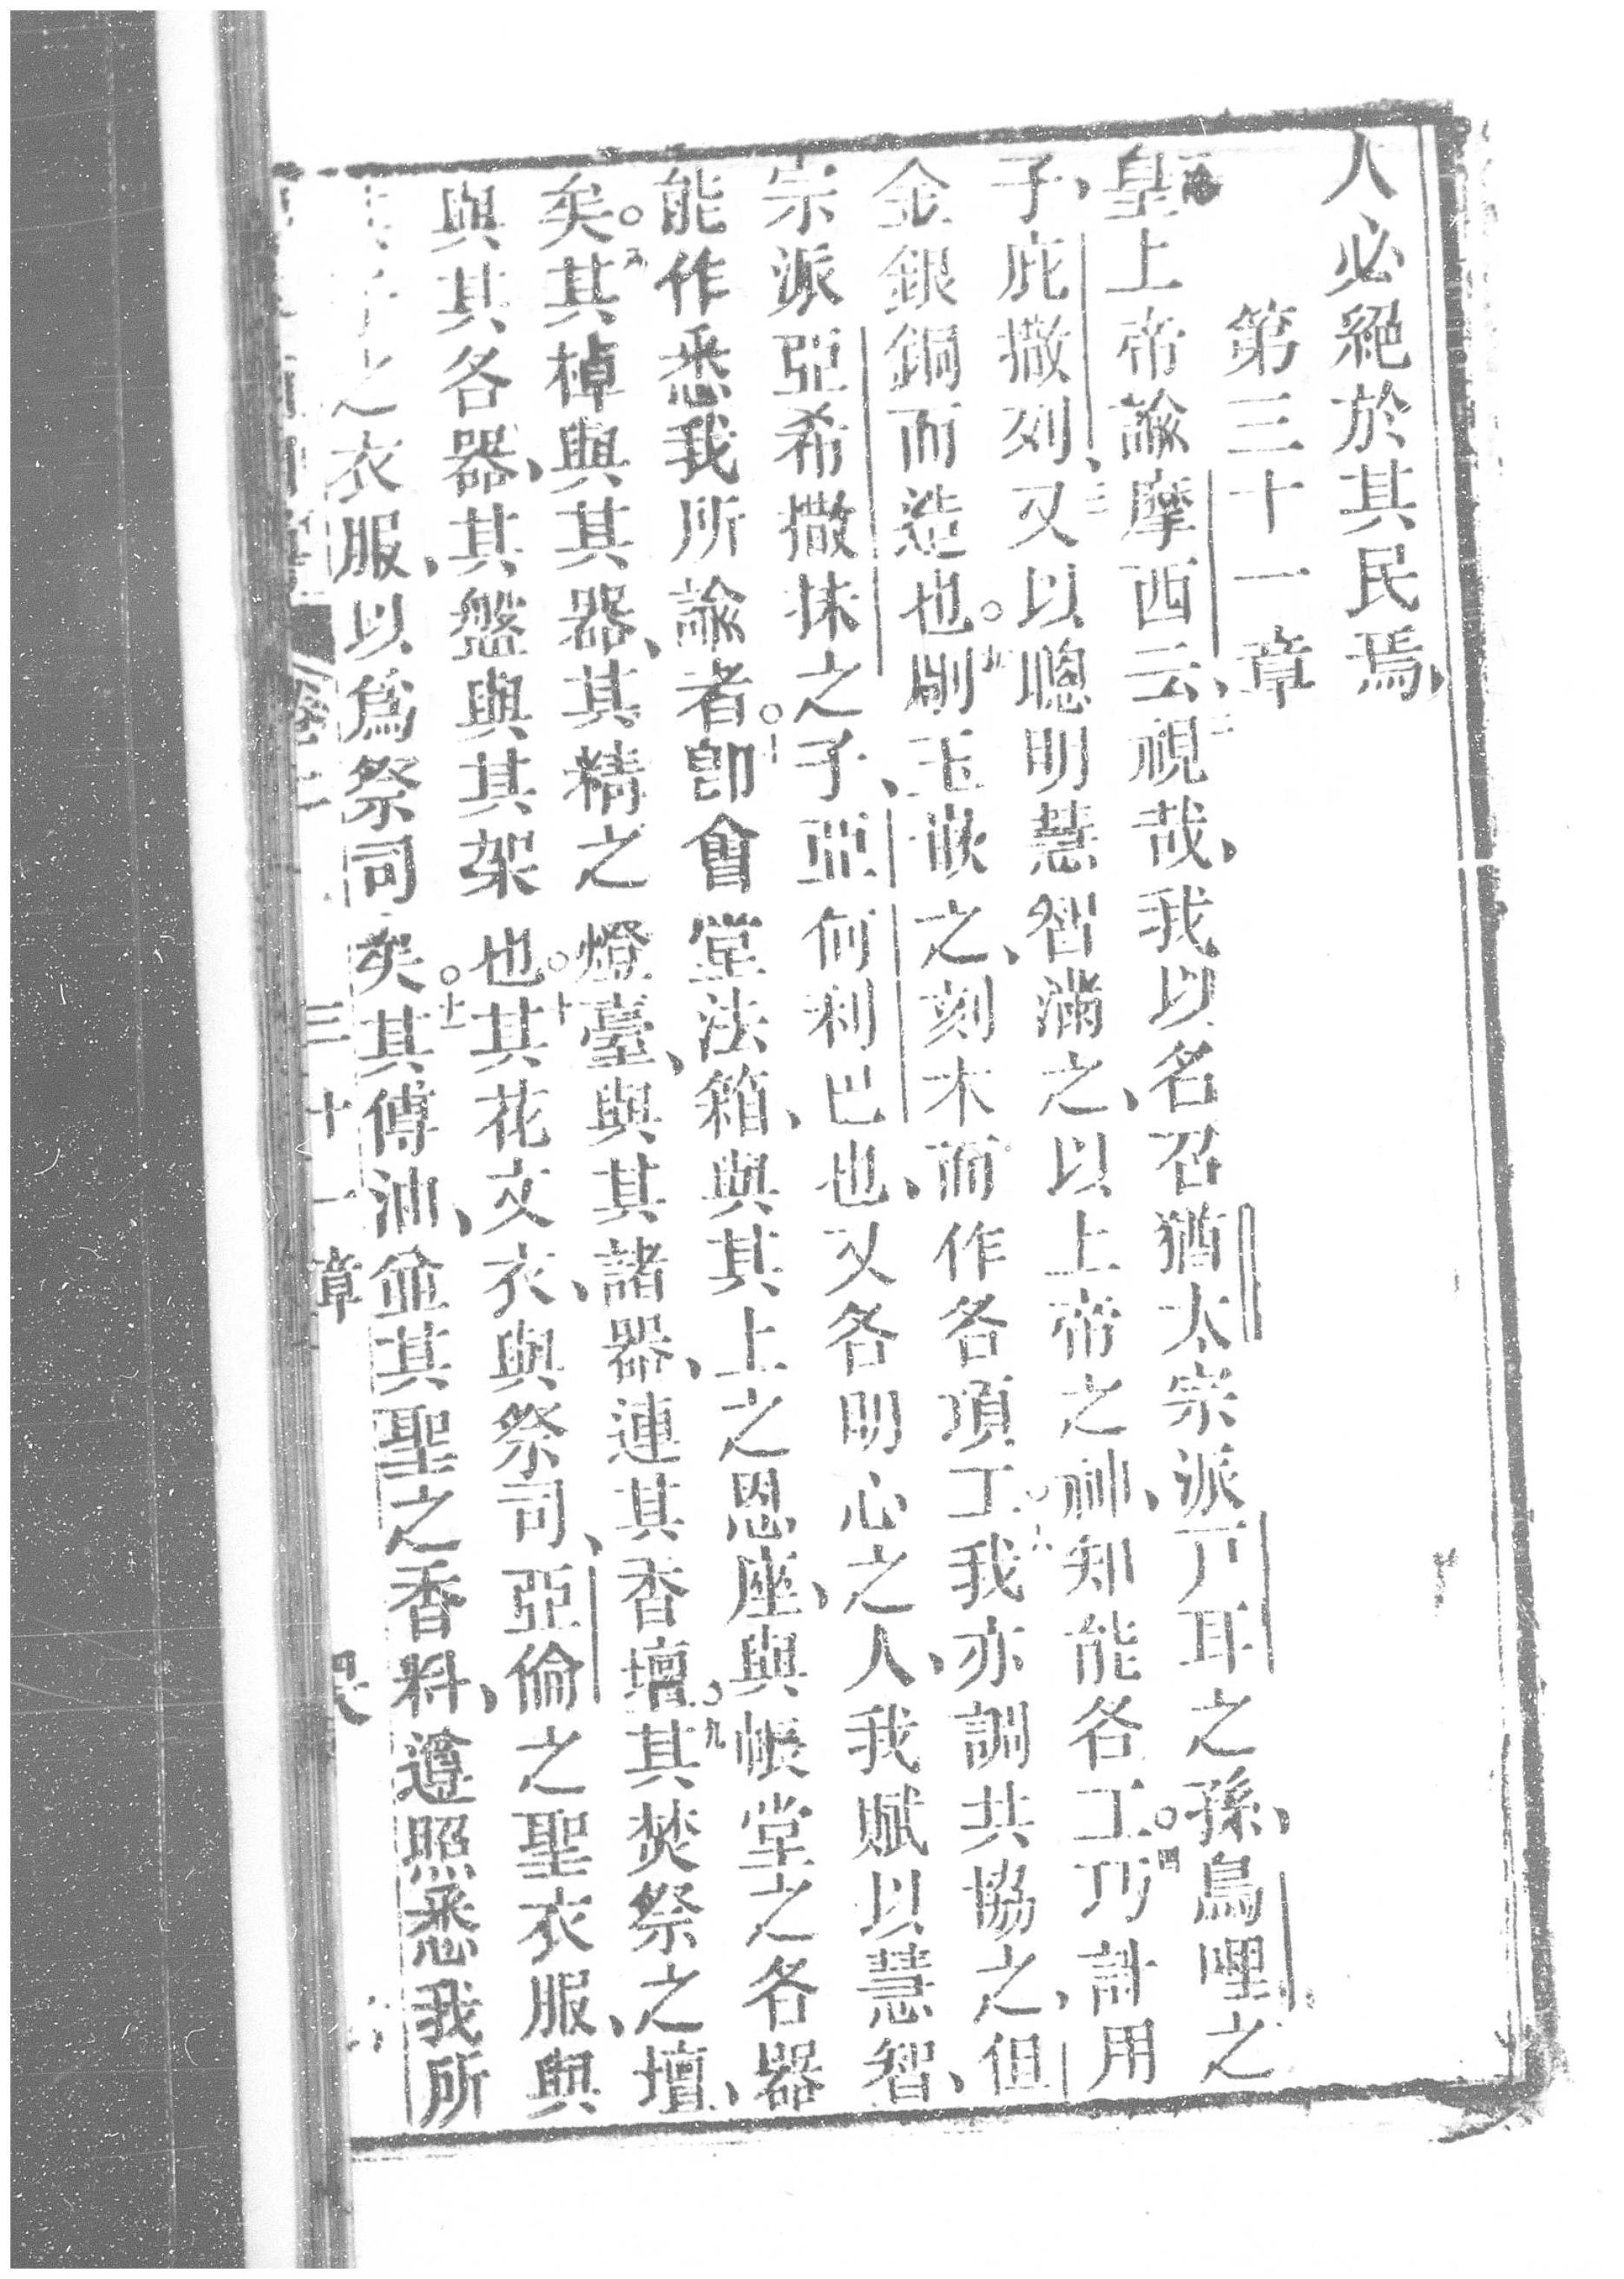 人必絕於其民焉、
第三十一章
皇上帝諭摩西云、二視哉、我以名召猶太宗派戸耳之孫、烏哩之
子、庇撒列、三又以聰明慧智滿之、以上帝之神、知能各工。四巧計用
金銀銅而造也。五剛玉嵌之、刻木而作各項工。六我亦調共協之、但
宗派亞希撒抹之子、亞何利巴也、又各明心之人、我賦以慧智、
能作悉我所諭者。七卽會堂法箱、與其上之恩座、與帳堂之各器
矣。八其棹與其器、其精之燈臺、與其諸器、連其香壇。九其焚祭之壇、
與其各器、其盤與其架也。十其花文衣、與祭司、亞倫之聖衣服、與
子之衣服、以爲祭司矣。十一其傅油、並其聖之香料、遵照悉我所
三十一章